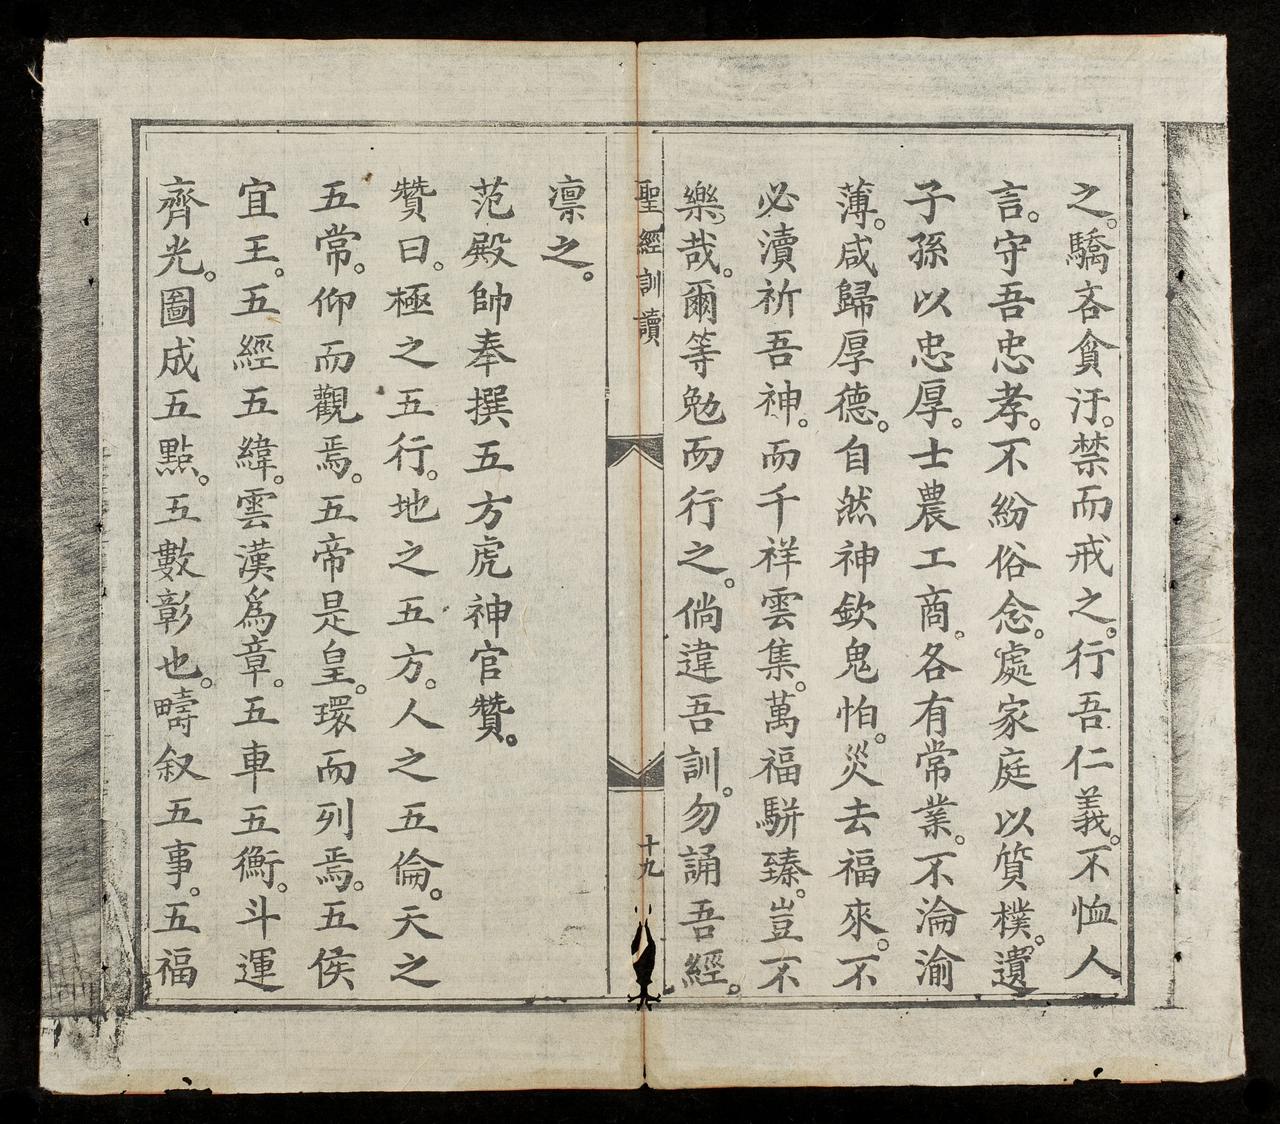 之。驕吝貪汙。禁而戒之。行吾仁義。不恤人
言。守吾忠孝。不紛俗念。處家庭以質樸。遺
子孫以忠厚。士農工商。各有常業。不淪渝
薄。咸歸厚德。自然神欽鬼怕。災去福來。不
必瀆祈吾神。而千祥雲集。萬福駢臻。豈不
樂哉。爾等勉而行之。倘違吾訓。勿誦吾經。
聖經訓讀
十九
凛之。
范殿帥奉撰五方虎神官贊。
贊曰。極之五行。地之五方。人之五倫。天之
五常。仰而觀焉。五帝是皇。環而列焉。五侯
宜王。五經五緯。雲漢為章。五車五衡。斗運
齊光。圖成五點。五數彰也。疇叙五事。五福